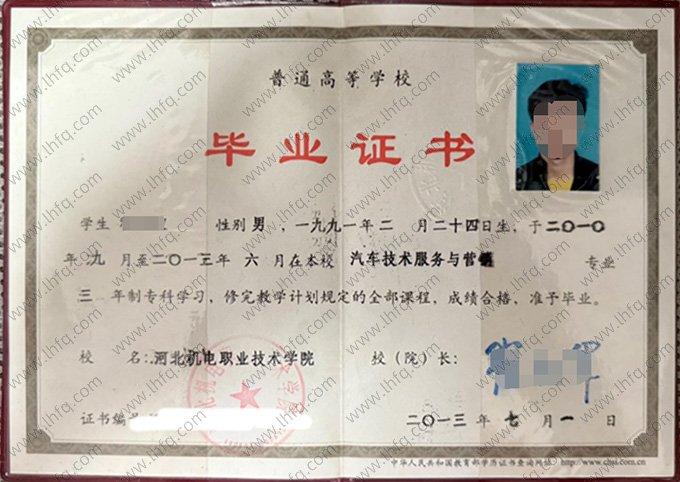 普通高等学校
毕业证书
学生 性别 男，一九九一年 二 月 二十四日生，于 二〇一〇
年 九 月至 二〇一三年 六 月在本校 汽车技术服务与营 专业
三 年制专科学习，修完教学计划规定的全部课程，成绩合格，准予毕业。
校 名：河北机电职业技术学院 校（院）长：
证书编号 二〇一三 年 七 月 一 日
中华人民共和国教育部学历证书查询网址：http://www.chsi.com.cn
www.lhfq.com